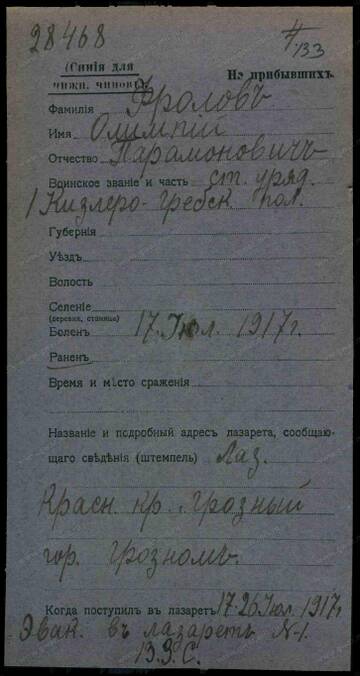 28468
4/133
(Синія для
нижн. чиновъ).
Из прибывшихъ
Фамилія Фроловъ
Имя Олимпій
Отчество Парамоновичъ
Воинское званіе и часть ст. уряд.
1 Кизлеро-Гребск пол.
Губернія
Уѣздъ
Волость
Селеніе
(деревня, станица)
Боленъ 17. Іюл. 1917 г.
Раненъ
Время и мѣсто сраженія
Названіе и подробный адресъ лазарета, сообщаю-
щаго свѣдѣнія (штемпель) Лаз.
Красн. кр. Грозный
гор. Грозномъ.
Когда поступилъ въ лазаретъ 17-26 Іюл. 1917 г.
Эвак. въ лазаретъ N-1.
В.З.С.